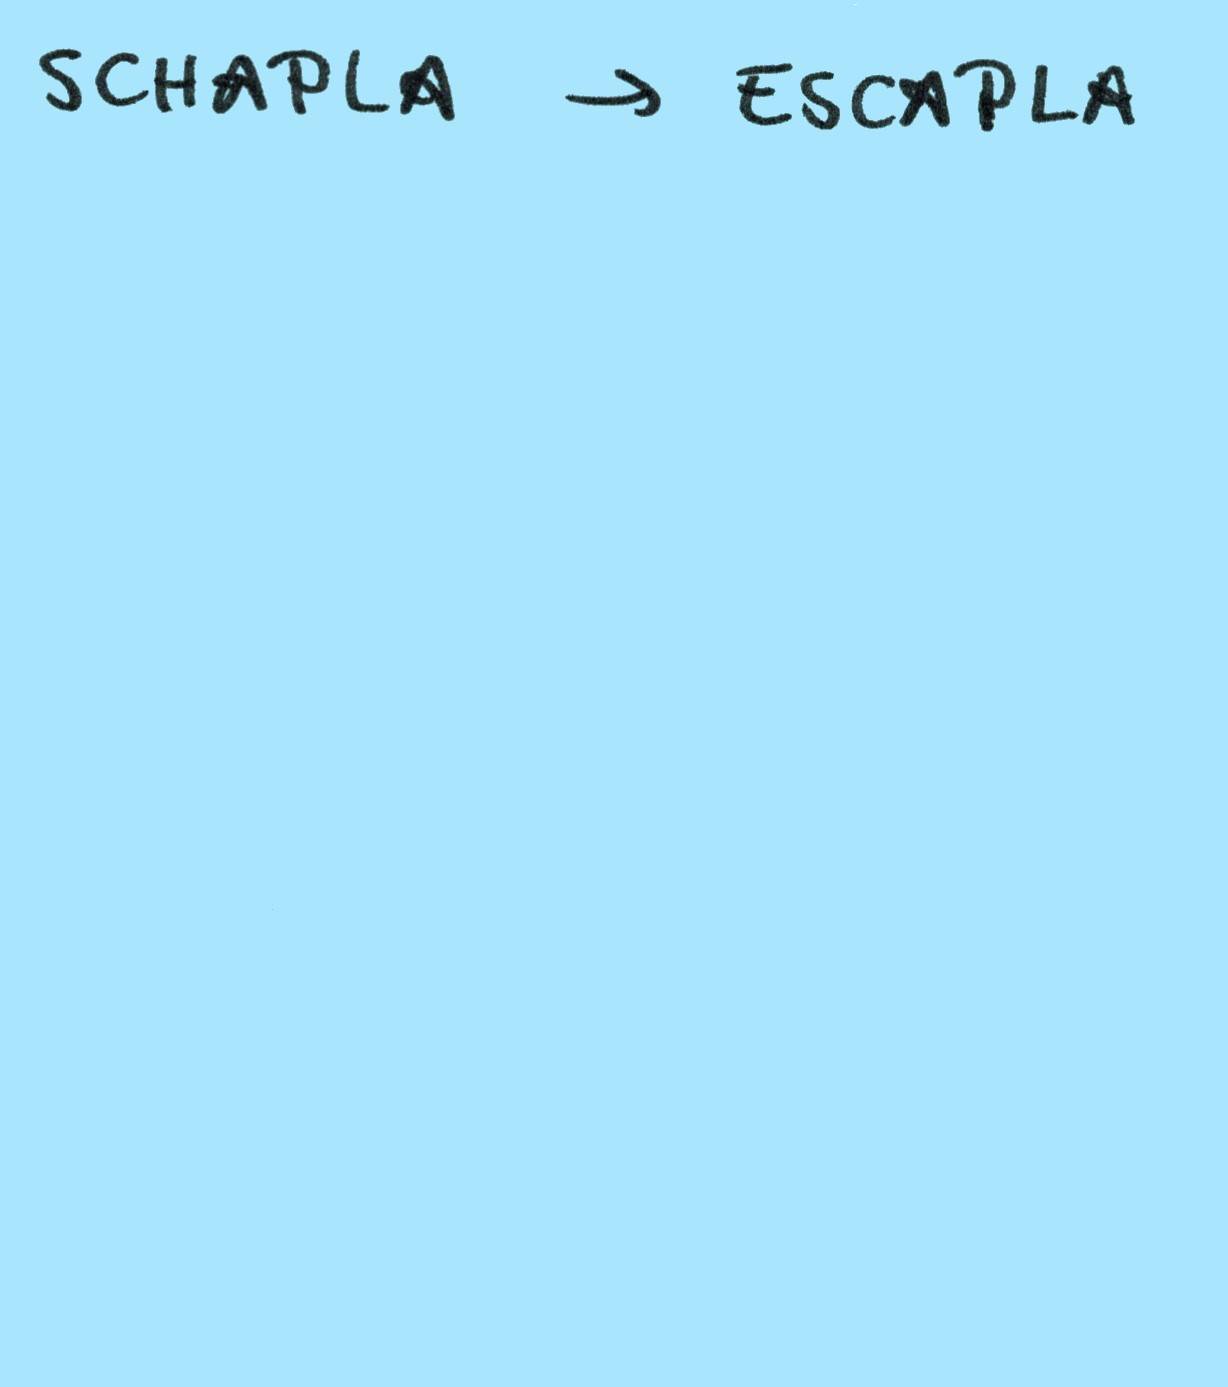 SCHAPLA → ESCAPLA